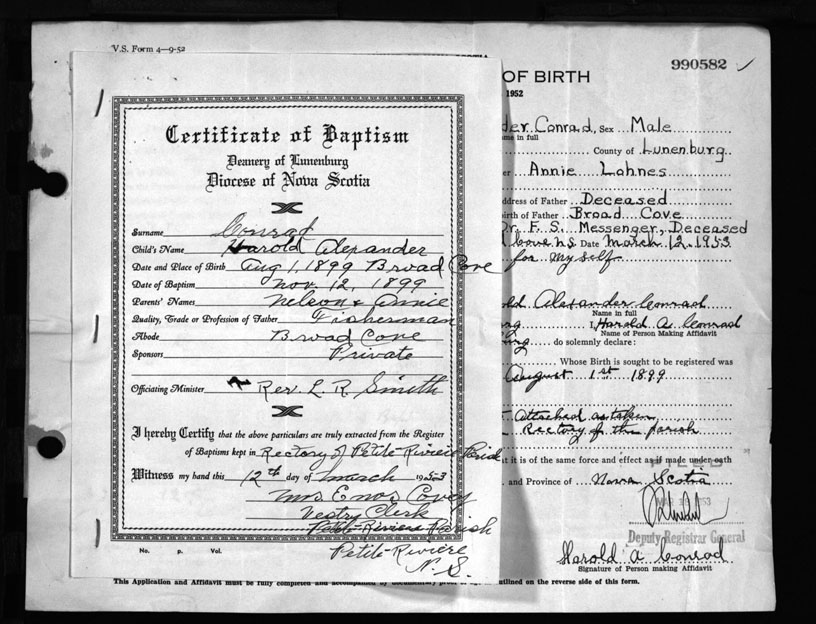 V.S. Form 4—9-52
Certificate of Baptism
Deanery of Lunenburg
Diocese of Nova Scotia
Surname Conrad
Child's Name Harold Alexander
Date and Place of Birth Aug 1, 1899 Broad Cove
Date of Baptism Nov. 12, 1899
Parents' Names Nelson & Annie
Quality, Trade or Profession of Father Fisherman
Abode Broad Cove
Sponsors Private
Officiating Minister Rev. L. R. Smith
I hereby Certify that the above particulars are truly extracted from the Register
of Baptisms kept in Rectory of Petite Riviere Parish
Witness my hand this 12th day of March 1953
Mrs Enos Covey
Vestry Clerk
Petite-Riviere Parish
Petite-Riviere
N.S.
No. p. Vol.
990582
OF BIRTH
1952
der Conrad, Sex Male
me in full
County of Lunenburg
Annie Lohnes
ddress of Father Deceased
irth of Father Broad Cove
Dr. F. S. Messenger, Deceased
Date March 12, 1953
for my self
old Alexander Conrad
Name in full
I, Harold A. Conrad
Name of Person Making Affidavit
do solemnly declare:
Whose Birth is sought to be registered was
August 1st 1899
Attached as taken
Rectory of the parish
t it is of the same force and effect as if made under oath
and Province of Nova Scotia
Deputy Registrar General
Harold A Conrad
Signature of Person making Affidavit
This Application and Affidavit must be fully completed and accompanied by outlined on the reverse side of this form.